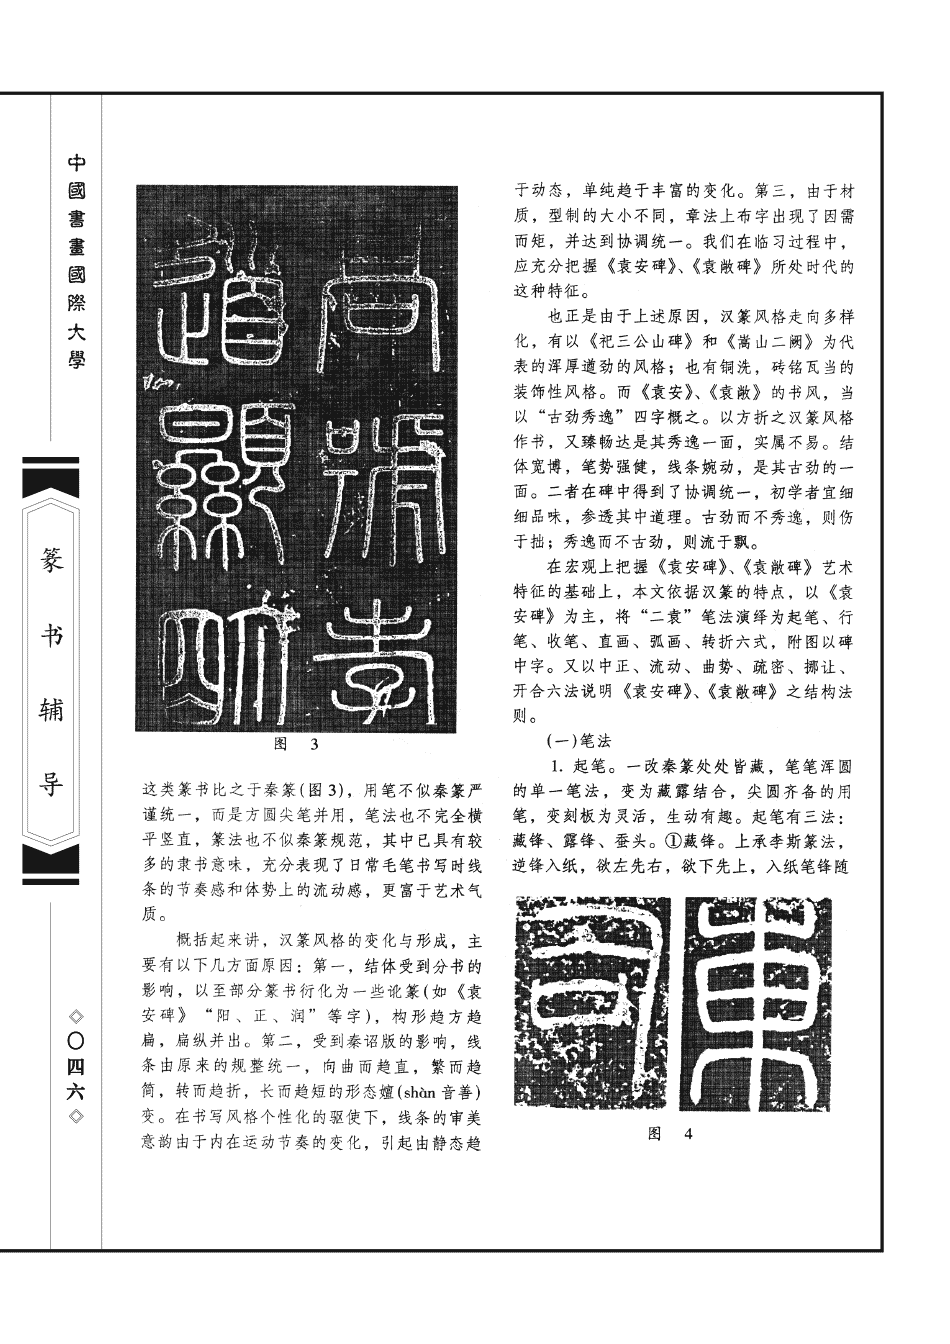 中國書畫國際大學
篆书辅导
◇〇四六◇
图 3
这类篆书比之于秦篆(图3)，用笔不似秦篆严
谨统一，而是方圆尖笔并用，笔法也不完全横
平竖直，篆法也不似秦篆规范，其中已具有较
多的隶书意味，充分表现了日常毛笔书写时线
条的节奏感和体势上的流动感，更富于艺术气
质。
概括起来讲，汉篆风格的变化与形成，主
要有以下几方面原因：第一，结体受到分书的
影响，以至部分篆书衍化为一些讹篆(如《袁
安碑》“阳、正、润”等字)，构形趋方趋
扁，扁纵并出。第二，受到秦诏版的影响，线
条由原来的规整统一，向曲而趋直，繁而趋
简，转而趋折，长而趋短的形态嬗(shàn音善)
变。在书写风格个性化的驱使下，线条的审美
意韵由于内在运动节奏的变化，引起由静态趋
于动态，单纯趋于丰富的变化。第三，由于材
质，型制的大小不同，章法上布字出现了因需
而矩，并达到协调统一。我们在临习过程中，
应充分把握《袁安碑》、《袁敞碑》所处时代的
这种特征。
也正是由于上述原因，汉篆风格走向多样
化，有以《祀三公山碑》和《嵩山二阙》为代
表的浑厚遒劲的风格；也有铜洗，砖铭瓦当的
装饰性风格。而《袁安》、《袁敞》的书风，当
以“古劲秀逸”四字概之。以方折之汉篆风格
作书，又臻畅达是其秀逸一面，实属不易。结
体宽博，笔势强健，线条婉动，是其古劲的一
面。二者在碑中得到了协调统一，初学者宜细
细品味，参透其中道理。古劲而不秀逸，则伤
于拙；秀逸而不古劲，则流于飘。
在宏观上把握《袁安碑》、《袁敞碑》艺术
特征的基础上，本文依据汉篆的特点，以《袁
安碑》为主，将“二袁”笔法演绎为起笔、行
笔、收笔、直画、弧画、转折六式，附图以碑
中字。又以中正、流动、曲势、疏密、挪让、
开合六法说明《袁安碑》、《袁敞碑》之结构法
则。
(一)笔法
1. 起笔。一改秦篆处处皆藏，笔笔浑圆
的单一笔法，变为藏露结合，尖圆齐备的用
笔，变刻板为灵活，生动有趣。起笔有三法：
藏锋、露锋、蚕头。①藏锋。上承李斯篆法，
逆锋入纸，欲左先右，欲下先上，入纸笔锋随
图 4